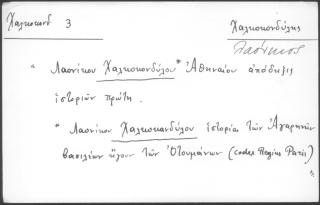 Χαλκοκονδ 3
Χαλκοκονδύλης
Λαόνικος
" Λαονίκου Χαλκοκονδύλου * Ἀθηναίου ἀπόδειξις
ἱστοριῶν πρώτη.
* Λαονίκου Χαλκοκανδύλου ἱστορία τῶν Ἀγαρηνῶν
βασιλέων ἤγουν τῶν Ὀτουμάνων (codex Regius Paris) "